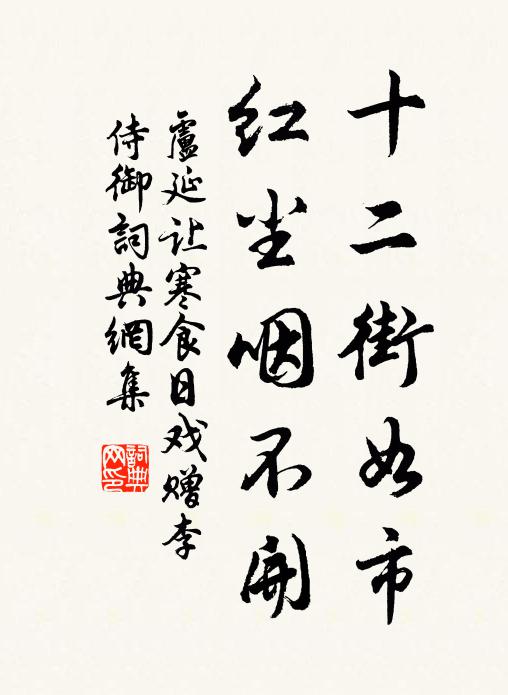 十二街如市
红尘咽不開
盧延让寒食日戏赠李
侍御詞典網集
詞典网印